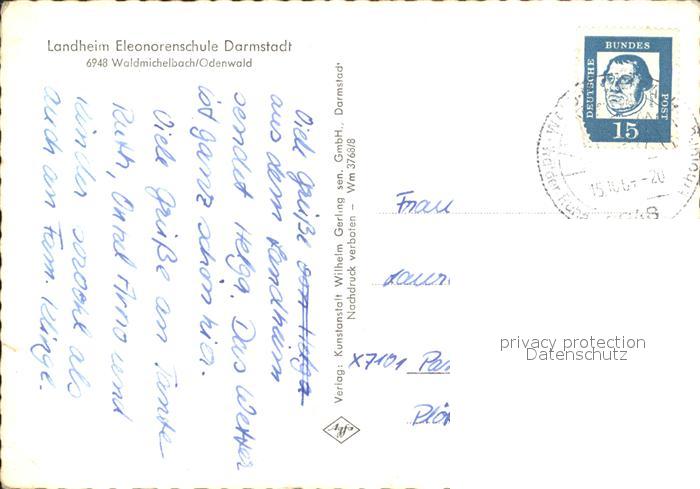 Landheim Eleonorenschule Darmstadt
6948 Waldmichelbach/Odenwald
Viele Grüße von Helga
aus dem Landheim
sendet Helga. Das Wetter
ist ganz schön hier.
Viele Grüße an Tante
Ruth, Onkel Arno und
Kinder sowohl als
auch an Fam. Klinge.
Verlag: Kunstanstalt Wilhelm Gerling sen. GmbH., Darmstadt
Nachdruck verboten – Wm 3768/8
DEUTSCHE BUNDES POST
15
-20
Frau
Laur
X7101
privacy protection
Datenschutz